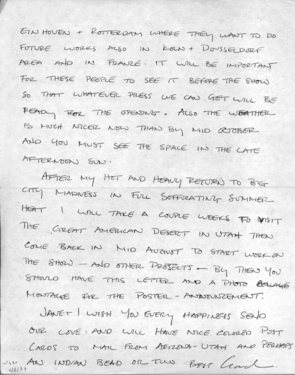 EINHOVEN + ROTTERDAM WHERE THEY WANT TO DO
FUTURE WORKS ALSO IN KOLN + DUSSELDORF
AREA AND IN FRANCE. IT WILL BE IMPORTANT
FOR THESE PEOPLE TO SEE IT BEFORE THE SHOW
SO THAT WHATEVER PRESS WE CAN GET WILL BE
READY FOR THE OPENING. ALSO THE WEATHER
IS MUCH NICER NOW THAN BY MID OCTOBER
AND YOU MUST SEE THE SPACE IN THE LATE
AFTERNOON SUN.
AFTER MY HOT AND HEAVY RETURN TO BIG
CITY MADNESS IN FULL SUFFOCATING SUMMER
HEAT I WILL TAKE A COUPLE WEEKS TO VISIT
THE GREAT AMERICAN DESERT IN UTAH THEN
COME BACK IN MID AUGUST TO START WORK ON
THE SHOW — AND OTHER PROJECTS — BY THEN YOU
SHOULD HAVE THIS LETTER AND A PHOTO COLLAGE
MONTAGE FOR THE POSTER - ANNOUNCEMENT.
JANET I WISH YOU EVERY HAPPINESS SEND
OUR LOVE. AND WILL HAVE NICE COLORED POST
CARDS TO MAIL FROM ARIZONA - UTAH AND PERHAPS
AN INDIAN BEAD OR TWO BEST